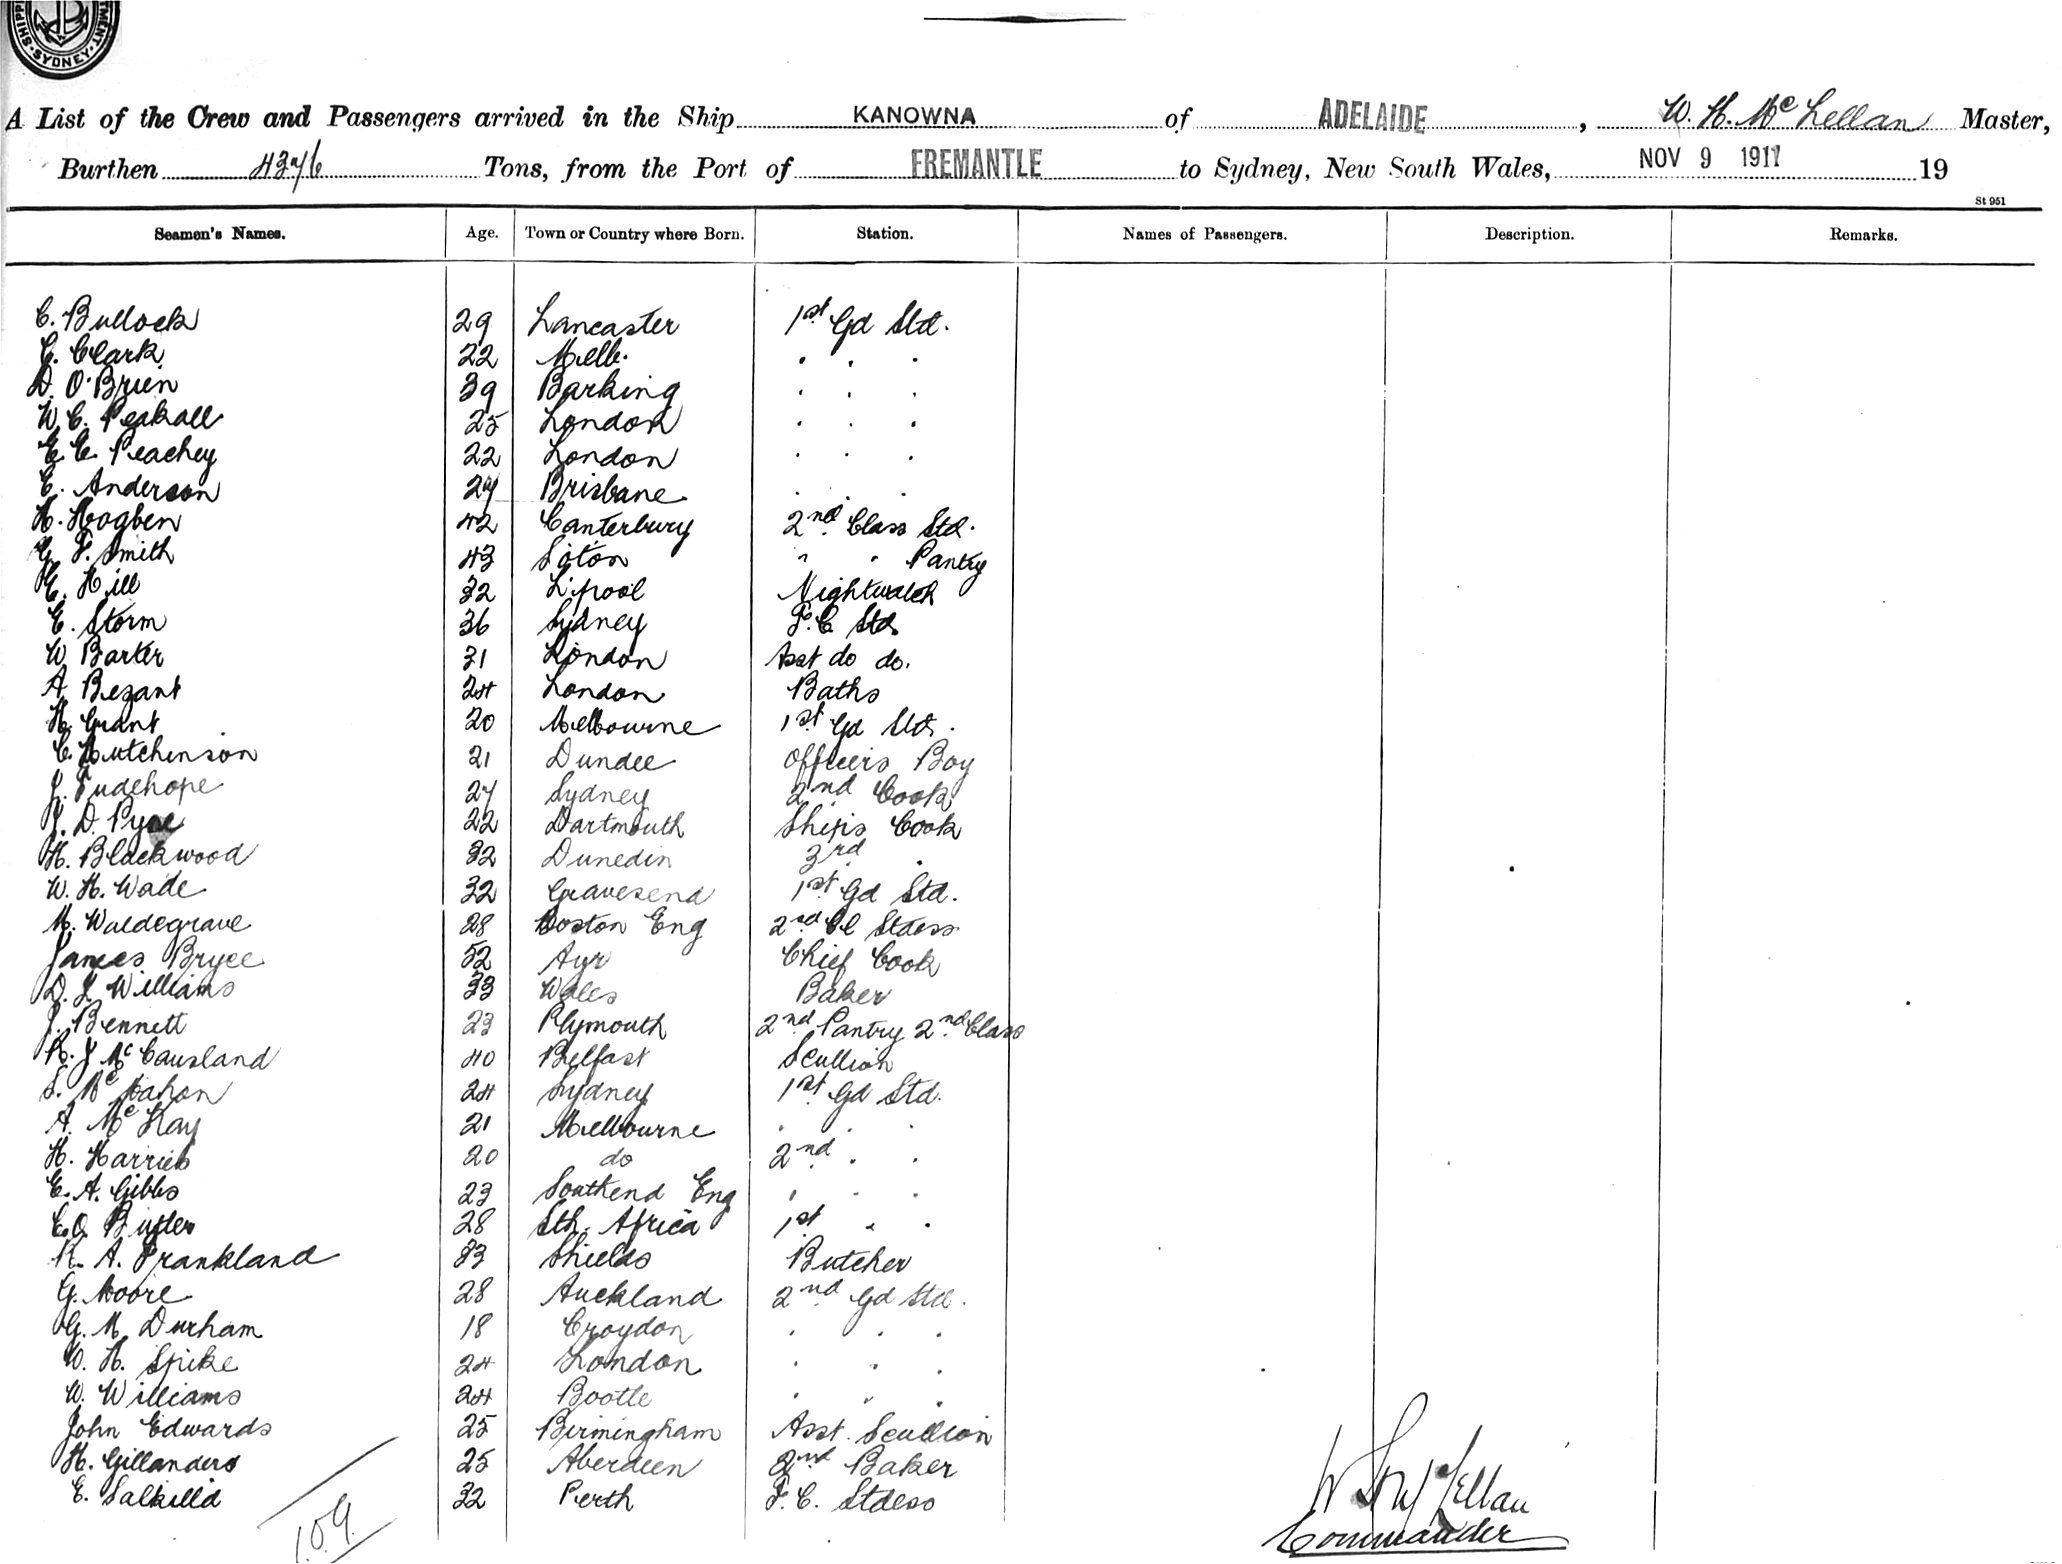 SHIPPI MENT. SYDNEY
A List of the Crew and Passengers arrived in the Ship KANOWNA of ADELAIDE, W. H. McLellan Master,
Burthen Tons, from the Port of FREMANTLE to Sydney, New South Wales, NOV 9 1911 19
St 951
Seamen's Names. Age. Town or Country where Born. Station. Names of Passengers. Description. Remarks.
C. Bullock 29 Lancaster 1st Gd Std.
G. Clark 22 Melb. . . .
D. O'Brien 39 Barking . . .
W. C. Peakall 25 London . . .
E. E. Peachey 22 London . . .
C. Anderson 24 Brisbane . . .
H. Hogben 42 Canterbury 2nd Class Std.
G. F. Smith 43 Soton " " Pantry
E. Hill 32 L'pool Nightwatch
E. Storm 36 Sydney F. C. Std.
W Barter 31 London Asst do do.
A Bezant 24 London Baths
H. Grant 20 Melbourne 1st Gd Std.
C. Hutchinson 21 Dundee Officers Boy
J. Tudehope 24 Sydney 2nd Cook
J. D. Pyne 22 Dartmouth Ships Cook
H. Blackwood 32 Dunedin 3rd .
W. H. Wade 32 Gravesend 1st Gd Std.
M. Waldegrave 28 Boston Eng 2nd Cl Stdess
James Bryce 52 Ayr Chief Cook
D. J. Williams 33 Wales Baker
J. Bennett 23 Plymouth 2nd Pantry 2nd Class
R. J. McCausland 40 Belfast Scullion
S. McMahon 24 Sydney 1st Gd Std.
A. McKay 21 Melbourne . . .
H. Harries 20 do 2nd . .
E. A. Gibbs 23 Southend Eng . . .
C. O. Butler 28 Sth. Africa 1st . .
R. A. Frankland 33 Shields Butcher
G. Moore 28 Auckland 2nd Gd Std.
G. M. Durham 18 Croydon . . .
W. H. Spike 24 London . . .
W. Williams 24 Bootle . . .
John Edwards 25 Birmingham Asst. Scullion
H. Gillanders 25 Aberdeen 2nd Baker
E. Salkilld 32 Perth F. C. Stdess
109
W H McLellan
Commander